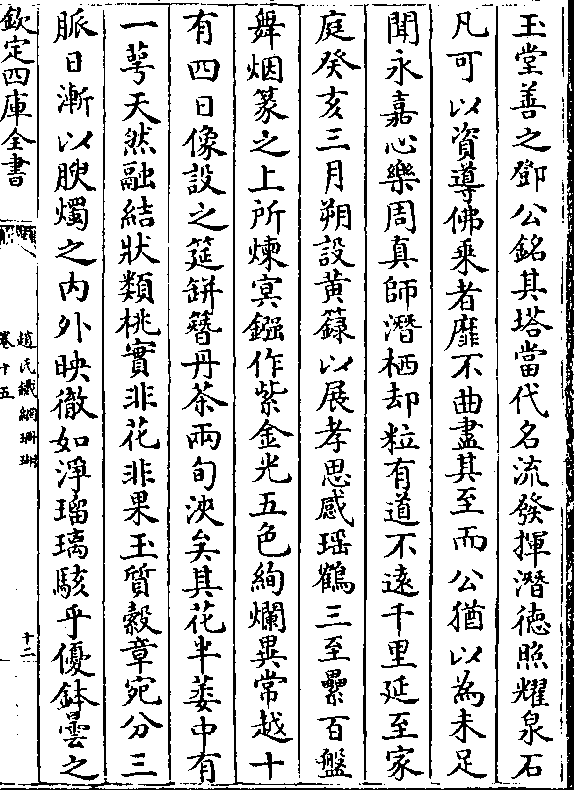 玉堂善之鄧公銘其塔當代名流發揮潛德照耀泉石
凡可以資導佛乘者靡不曲盡其至而公猶以為未足
聞永嘉心樂周真師潛栖却粒有道不遠千里延至家
庭癸亥三月朔設黄籙以展孝思感瑶鶴三至纍百盤
舞烟篆之上所煉㝠鏹作紫金光五色絢爛異常越十
有四日像設之筵缾簪丹茶兩旬浹矣其花半萎中有
一蕚天然融結狀類桃實非花非果玉質縠章宛分三
脈日漸以腴燭之内外映徹如淨瑠璃駭乎優鉢曇之
欽定四庫全書
趙氏鐵網珊瑚
卷十五
十二